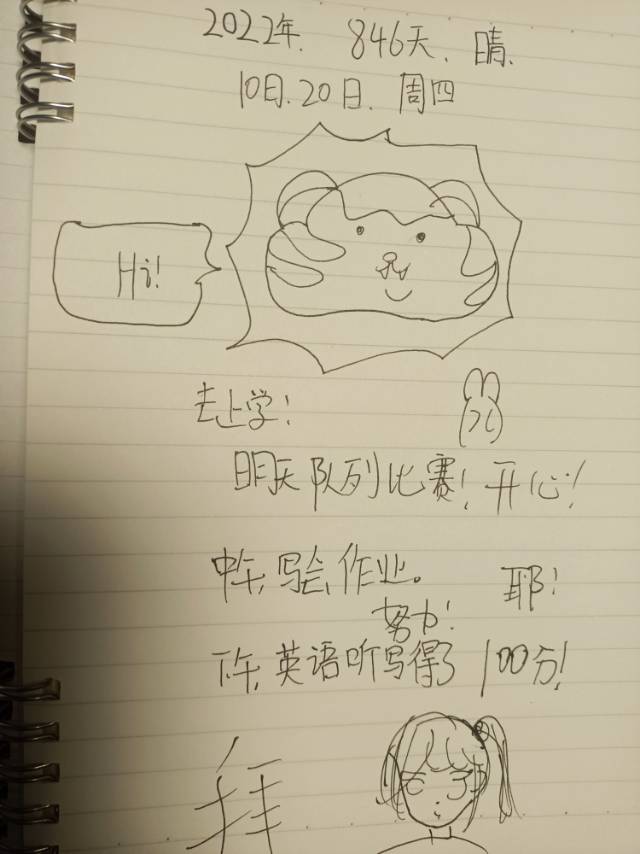 2022年. 846天. 晴.
10日.20日. 周四
Hi!
去上学!
明天队列比赛! 开心!
中午,写会,作业。 耶!
努力!
下午,英语听写得了 100分!
拜